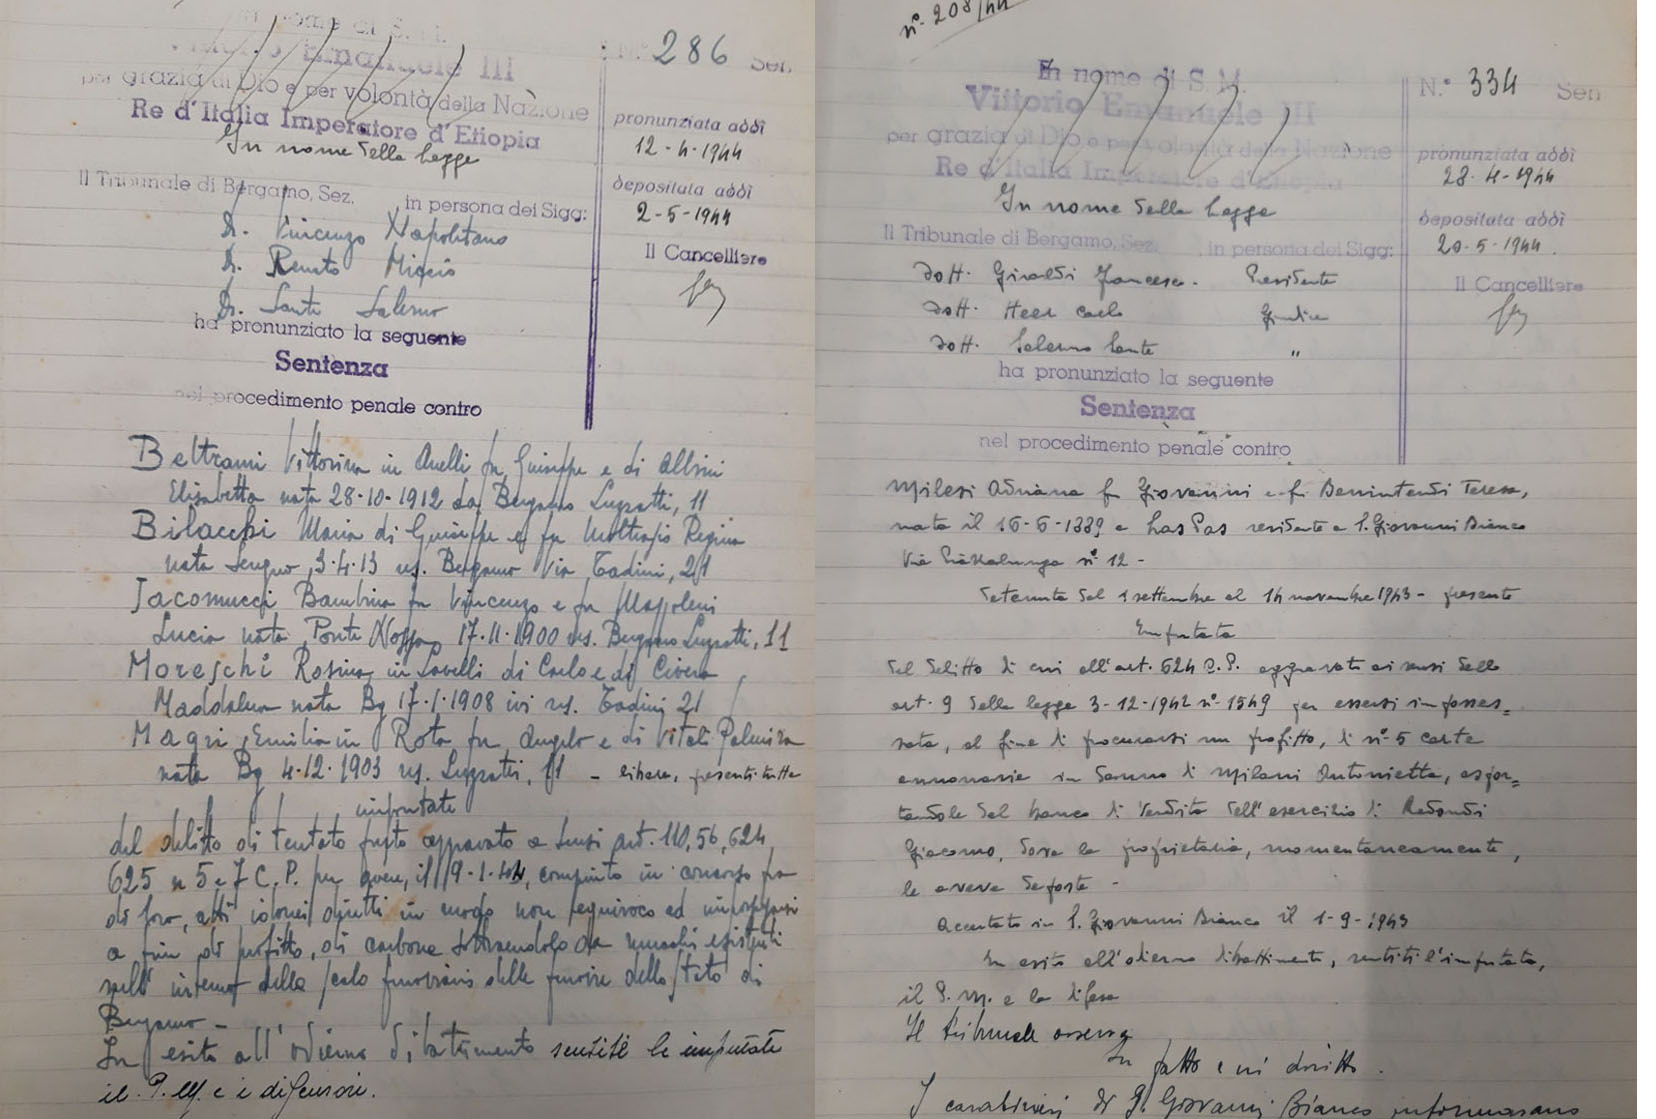 In nome di S. M.
Vittorio Emanuele III
per grazia di Dio e per volontà della Nazione
Re d'Italia Imperatore d'Etiopia
In nome della legge
Il Tribunale di Bergamo, Sez. in persona dei Sigg:
D. Vincenzo Napolitano
D. Renato
D. Sante Salerno
ha pronunziato la seguente
Sentenza
nel procedimento penale contro
N.° 286 Sen.
pronunziata addì
12-4-1944
depositata addì
2-5-1944
Il Cancelliere
Beltrami Vittorina in Anelli fu Giuseppe e di Albini
Elisabetta nata 28-10-1912 da Bergamo Luzzatti, 11
Bilacchi Maria di Giuseppe e fu Regina
nata 3.4.13 res. Bergamo Via Tadini, 21
Jacomucci Bambina fu Vincenzo e fu
Lucia nata Ponte Nossa 17.11.1900 res. Bergamo Luzzatti, 11
Moreschi Rosina in Lavelli di Carlo e di Civera
Maddalena nata Bg 17.1.1908 ivi res. Tadini 21
Magri Emilia in Rota fu Angelo e di Vitali Palmira
nata Bg 4.12.1903 res. Luzzatti, 11 - libere, presenti tutte
imputate
del delitto di tentato furto aggravato a sensi art. 110, 56, 624,
625 n 5 e 7 C. P. per avere, il 19-1-44, compiuto in concorso fra
di loro, atti idonei diretti in modo non equivoco ad impossessarsi
a fin di profitto, di carbone sottraendolo da mucchi esistenti
nell'interno dello scalo ferroviario delle ferrovie dello Stato di
Bergamo -
In esito all'odierno dibattimento sentite le imputate
il P. M. e i difensori.
n° 208/44
In nome di S. M.
Vittorio Emanuele III
per grazia di Dio e per volontà della Nazione
Re d'Italia Imperatore d'Etiopia
In nome della legge
Il Tribunale di Bergamo, Sez. in persona dei Sigg:
dott. Giraldi Francesco - Presidente
dott. Heer Carlo Giudice
dott. Salerno Sante "
ha pronunziato la seguente
Sentenza
nel procedimento penale contro
N.° 334 Sen
pronunziata addì
28-4-1944
depositata addì
20-5-1944.
Il Cancelliere
Milesi Adriana fu Giovanni e fu Benintendi Teresa,
nata il 16-6-1889 a Las Pas residente a S. Giovanni Bianco
Via Piazzalunga n° 12 -
Detenuta dal 1 settembre al 14 novembre 1943 - presente
Imputata
del delitto di cui all'art. 624 C. P. aggravato ai sensi dello
art. 9 della legge 3-12-1942 n° 1549 per essersi imposses=
sata, al fine di procurarsi un profitto, di n° 5 carte
annonarie in danno di Milani Antonietta, aspor=
tandole dal banco di vendita dell'esercizio di Redondi
Giacomo, dove la proprietaria, momentaneamente,
le aveva deposte -
Accertato in S. Giovanni Bianco il 1-9-1943
In esito all'odierno dibattimento, sentiti l'imputata,
il P. M. e la difesa
Il tribunale osserva
In fatto e in diritto.
I carabinieri di S. Giovanni Bianco informarono